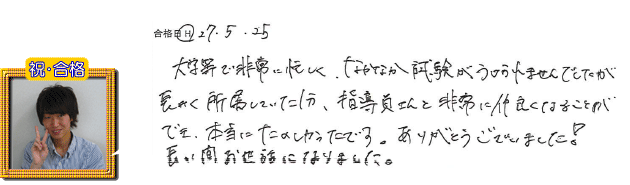 合格日 H 27.5.25
祝・合格
大学等で非常に忙しく、なかなか試験がうけれませんでしたが
長めく所属していた分、指導員さんと非常に仲良くなることが
でき、本当にたのしかったです。ありがとうございました!
長い間お世話になりました。